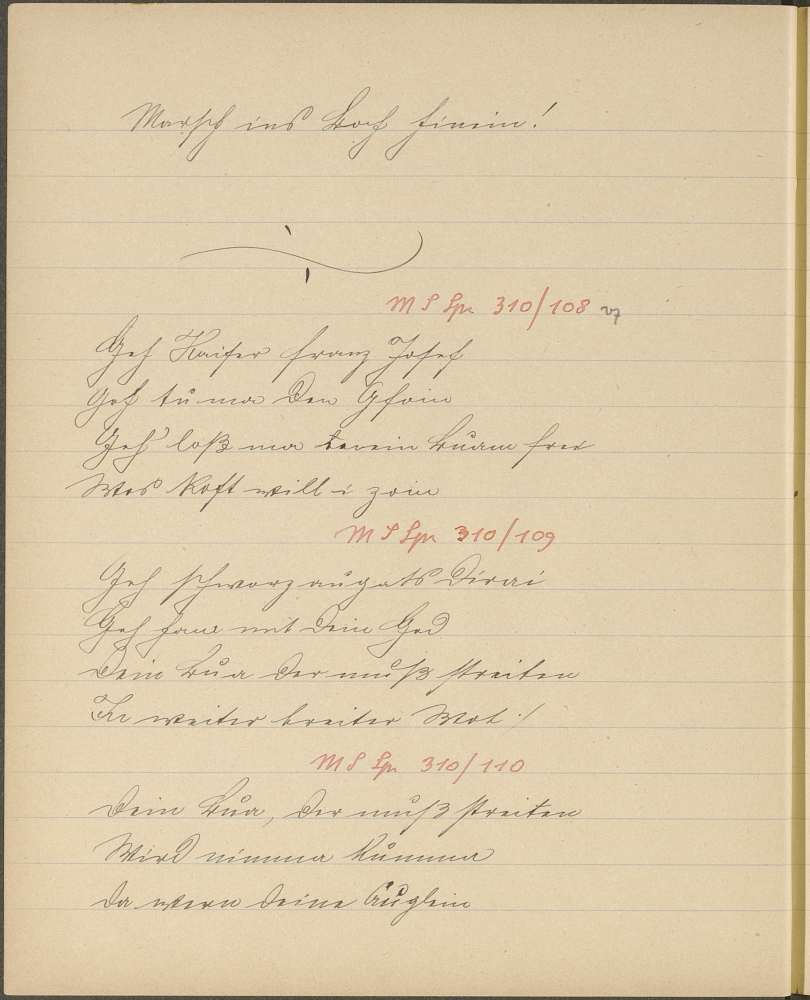 Marsch ins Loch hinein!
M S Spr 310/108
Geh Kaiser Franz Josef
Geh tu ma den Gfoin
Geh' loß ma mein Buam frei
Wos kost will i zoin
M S Spr 310/109
Geh schworzaugats Dirai
Geh ham mit dein God
Dein Bua der muß streiten
In weiter breiter Wot :/
M S Spr 310/110
Dein Bua, der muß streiten
Wird nimma kumma
Da wern deine Äuglein